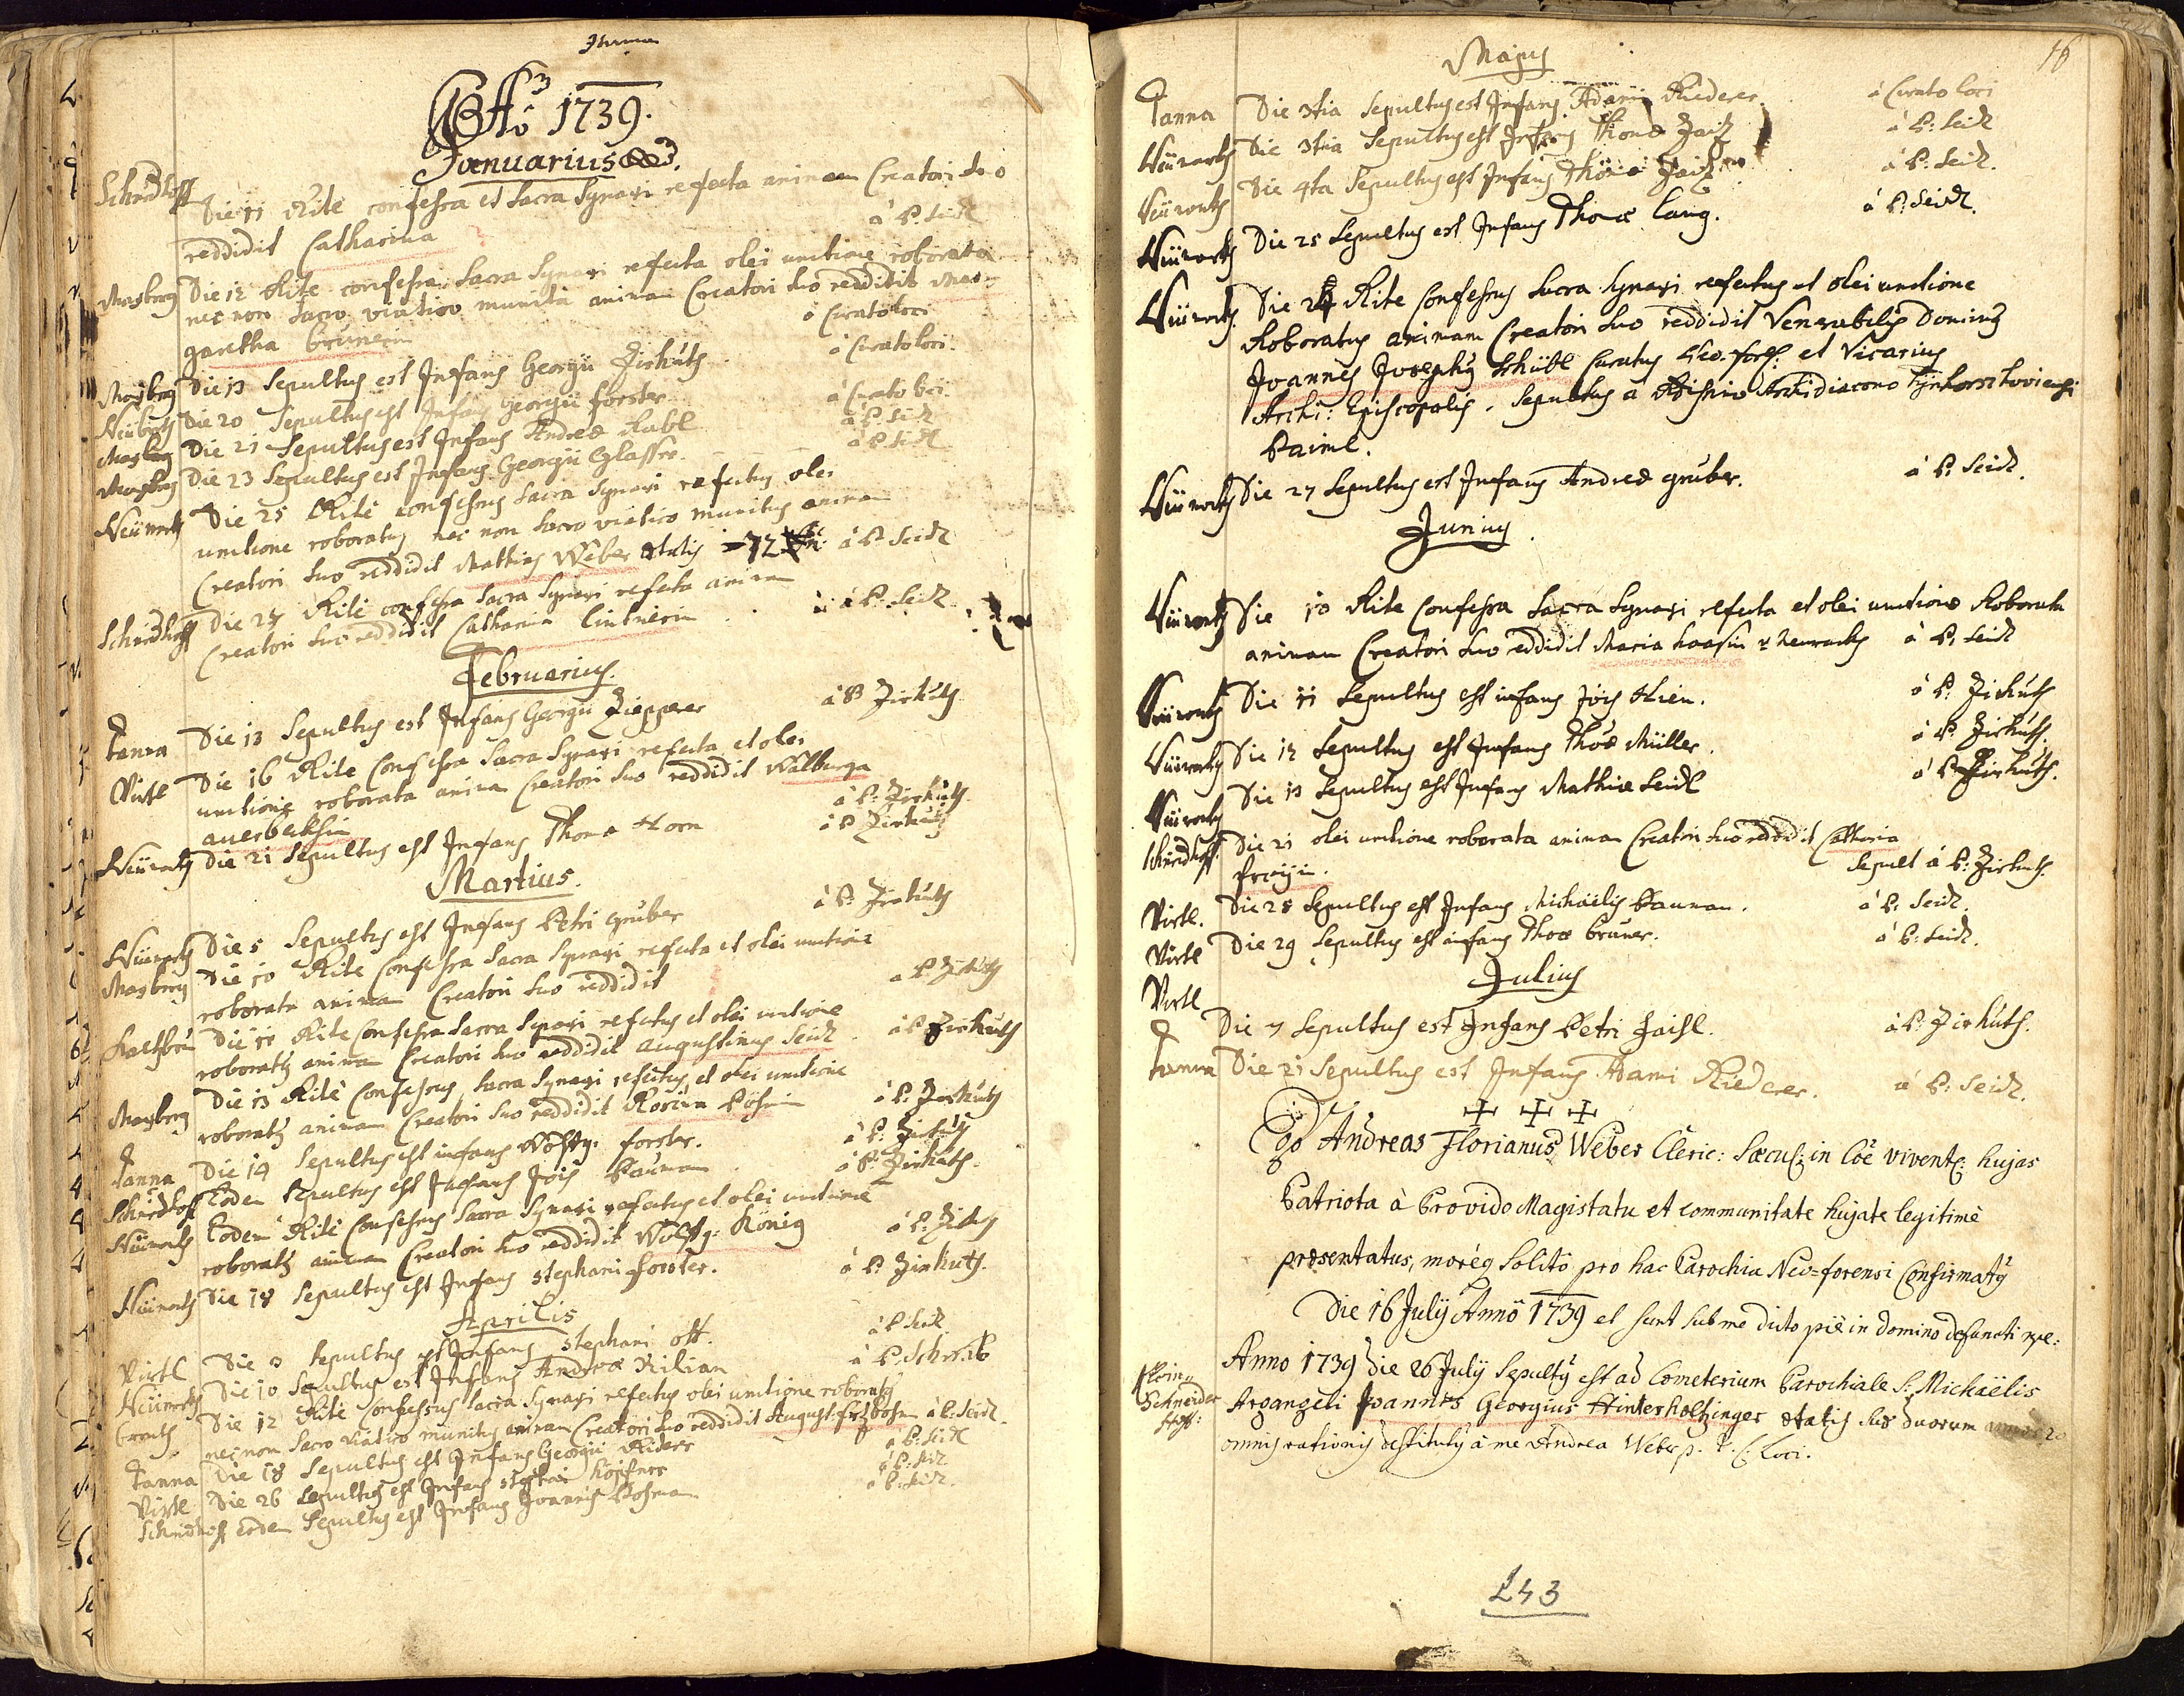 Aõ 1739.
Januarius
Schmidhoff Die 11 Rite confessa et Sacra Synaxi refecta animam Creatori suo
reddidit Catharina à P. Seidl
Masberg Die 12 Rite confessa Sacra Synaxi refecta olei unctione roborata
nec non Sacro viatico munita animam Creatori suo reddidit Mar-
garetha Brunerin à Curato loci
Masberg Die 13 Sepultus est Infans Georgii Zirkuts à Curato loci
Die 20 Sepultus est Infans Georgii forster à Curato loci
Masberg Die 21 Sepultus est Infans Andreæ Rabl à P. Seidl
Masberg Die 23 Sepultus est Infans Georgii Glasser à P. Seidl
Neümark Die 25 Rite confessus Sacra Synaxi refectus olei
unctione roboratus nec non Sacro viatico munitus animam
Creatori suo reddidit Mathias Weber ætatis 72 à P. Seidl
Schmidhoff Die 27 Rite confessa Sacra Synaxi refecta animam
Creatori suo reddidit Catharina Lintnerin à P. Seidl
Februarius.
Tanna Die 13 Sepultus est Infans Georgii Ziepperer à P Zirkuts
Virtl Die 16 Rite Confessa Sacra Synaxi refecta et olei
unctione roborata animam Creatori suo reddidit Walburga
auerbecksin à P. Zirkuts
Neümark Die 21 Sepultus est Infans Thomæ Horn à P Zirkuts
Martius.
Neümark Die 5 Sepultus est Infans Petri gruber à P. Zirkuts
Masberg Die 10 Rite Confessa Sacra Synaxi refecta et olei unctione
roborata animam Creatori suo reddidit à P. Zirkuts
Die 11 Rite Confessus Sacra Synaxi refectus et olei unctione
roboratus animam Creatori suo reddidit Augustinus Seidl à P Zirkuts
Masberg Die 13 Rite Confessus Sacra Synaxi refectus et olei unctione
roboratus animam Creatori suo reddidit Rosina Böhmin à P. Zirkuts
Tanna Die 14 Sepultus est infans Wolfg. forster. à P. Zirkuts
Schmidhoff Eodem Sepultus est Infans Jois Bauman à P. Zirkuts.
Neümark Eodem Rite Confessus Sacra Synaxi refectus et olei unctione
roboratus animam Creatori suo reddidit Wolfg: König à P. Zirkuts
Neümark Die 18 Sepultus est Infans Stephani forster. à P. Zirkuts.
Aprilis
Virtl Die Sepultus est Infans Stephani ott. à P Seidl
Neümark Die 10 Sepultus est Infans Andreæ Kilian à P. Schreib
Die 12 Rite Confessus Sacra Synaxi refectus olei unctione roboratus
nec non Sacro viatico munitus animam Creatori suo reddidit August: à P. Seidl.
Tanna Die 18 Sepultus est Infans Georgii Riderer à P. Seidl
Virtl Die 26 Sepultus est Infans Stephani höpfner à P. Seidl
Schmidhoff eodem Sepultus est Infans Joannis à P. Seidl.
16
Majus
Tanna Die 3tia Sepultus est Infans Adami Riederer. à Curato loci
Neümark Die 3tia Sepultus est Infans Thomæ Zaitz à P. Seidl
Neümark Die 4ta Sepultus est Infans Thomæ Zaitz à P. Seidl.
Neümark Die 25 Sepultus est Infans Thomæ Lang. à P. Seidl.
Neümark Die 24 Rite Confessus Sacra Synaxi refectus et olei unctione
Roboratus animam Creatori suo reddidit Venerabilis Dominus
Joannes Josephus Schübl Curatus Neo-forens. et Vicarius
Archi: Episcopalis. Sepultus a Archidiacono
Baiml.
Neümark Die 27 Sepultus est Infans Andreæ gruber. à P. Seidl.
Junius
Neümark Die 10 Rite Confessa Sacra Synaxi refecta et olei unctione Roborata
animam Creatori suo reddidit Maria haasin à P. Seidl
Neümark Die 11 Sepultus est infans Jois Hien. à P. Zirkuts
Neümark Die 12 Sepultus est Infans Thomæ Müller. à P. Zirkuts.
Neümark Die 13 Sepultus est Infans Mathiæ Seidl à P Zirkuts.
Schmidhoff Die 21 olei unctione roborata animam Creatori suo reddidit Catharina
freyin. Sepult à P. Zirkuts.
Virtl. Die 28 Sepultus est Infans Michaelis Bauman. à P. Seidl.
Virtl Die 29 Sepultus est infans Thomæ bruner. à P. Seidl.
Julius
Virtl Die 7 Sepultus est Infans Petri Zaisl. à P. Zirkuts.
Tanna Die 21 Sepultus est Infans Adami Riederer. à P. Seidl.
Ego Andreas Florianus Weber Cleric: Sæcul: in Cõe vivent: hujas
Patriota à Provido Magistatu et communitate hujate legitimè
præsentatus, moreq Solito pro hac Parochia Neo=forensi Confirmatus
Die 16 July Anno 1739 et sunt sub me dicto pie in Domino defuncti
Klein Schneider Anno 1739 Die 26 July Sepultus est ad Cometerium Parochiale S: Michaëlis
Argangeli Joannes Georgius Hinterholtzinger ætatis suæ duorum
omnis rationis destitutus à me Andrea Weber p. t. C. Loci.
143